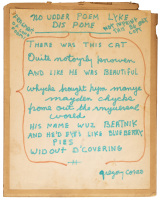 NO UDDER POEM LYKE
DIS POME
THERE WAS THIS CAT
Quite notoryly knowen
AND LIKE ME WAS BEAUTIFUL
whyche brought hym manye
mayden chycks
frome out the mysereal
world
HIS NAME WUZ BEATNIK
AND HE'D EYES LIKE BLUEBERRY
PIES
WIDOUT D'COVERING
gregory corso